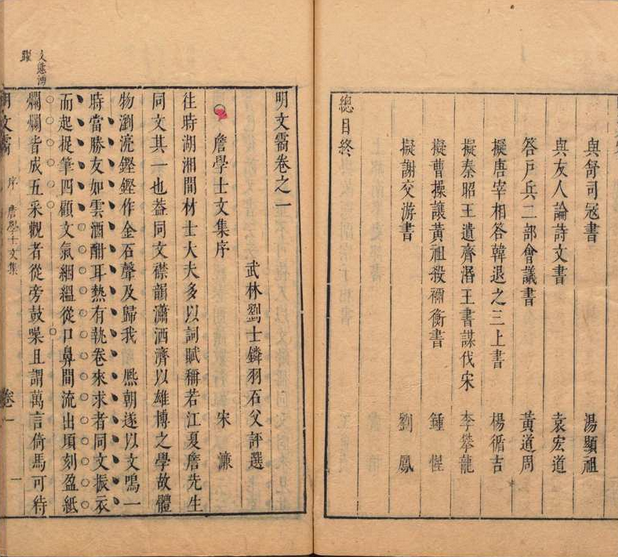 與舒司寇書 湯顯祖
與友人論詩文書 袁宏道
答戸兵二部會議書 黃道周
擬唐宰相答韓退之三上書 楊循吉
擬秦昭王遺齊湣王書謀伐宋 李攀龍
擬曹操讓黃祖殺禰衡書 鍾惺
擬謝交游書 劉鳳
總目終
明文霱卷之一
武林劉士鏻羽石父評選
詹學士文集序 宋濂
往時湖湘間材士大夫多以詞賦稱若江夏詹先生
同文其一也蓋同文襟韻瀟洒濟以雄博之學故體
物瀏浣鏗鏗作金石聲及歸我 熈朝遂以文鳴一
時當勝友如雲酒酣耳熱有執卷來求者同文振衣
而起捉筆四顧文氣絪縕從口鼻間流出頃刻盈紙
爛爛皆成五采觀者從旁鼓噪且謂萬言倚馬可待
明文霱 序 詹學士文集 卷一 一